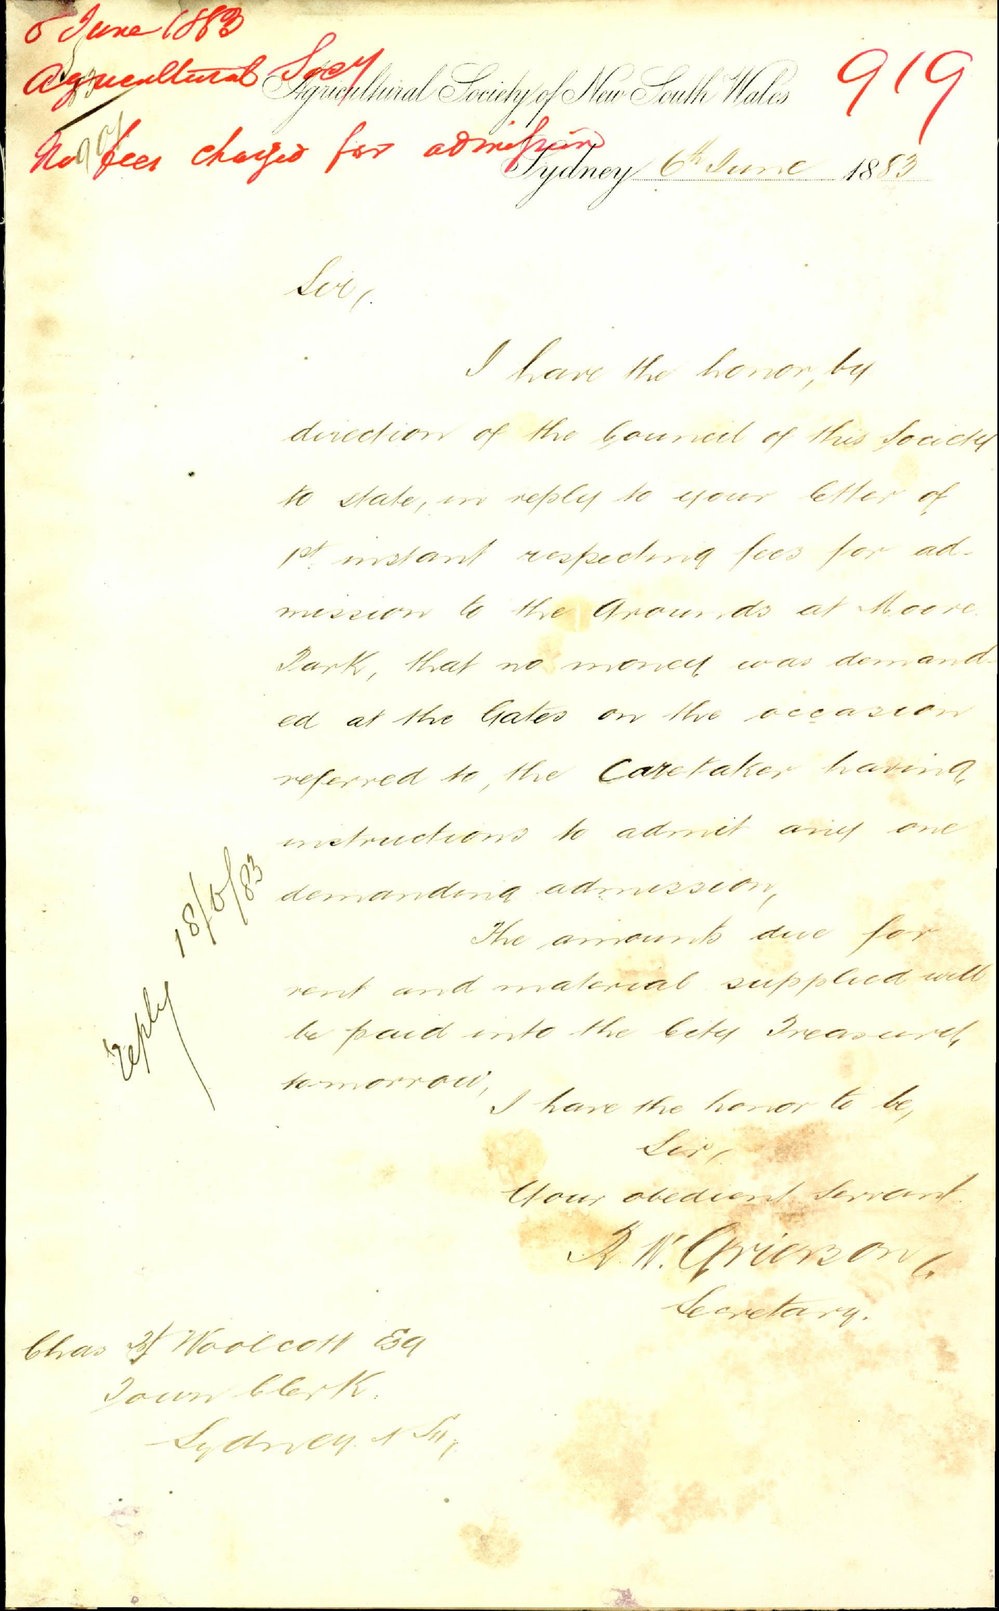 6 June 1883
Agricultural Socy
Agricultural Society of New South Wales
919
No fees charged for admission
Sydney 6th June 1883
Sir,
I have the honor, by
direction of the Council of this Society
to state, in reply to your letter of
1st. instant respecting fees for ad-
mission to the Grounds at Moore
Park, that no money was demand-
ed at the Gates on the occasion
referred to, the Caretaker having
instructions to admit any one
demanding admission,
The amounts due for
rent and material supplied will
be paid into the City Treasury
tomorrow,
reply 18/6/83
I have the honor to be,
Sir,
Your obedient Servant
Grierson
Secretary.
Chas H Woolcott Esq
Town Clerk.
Sydney